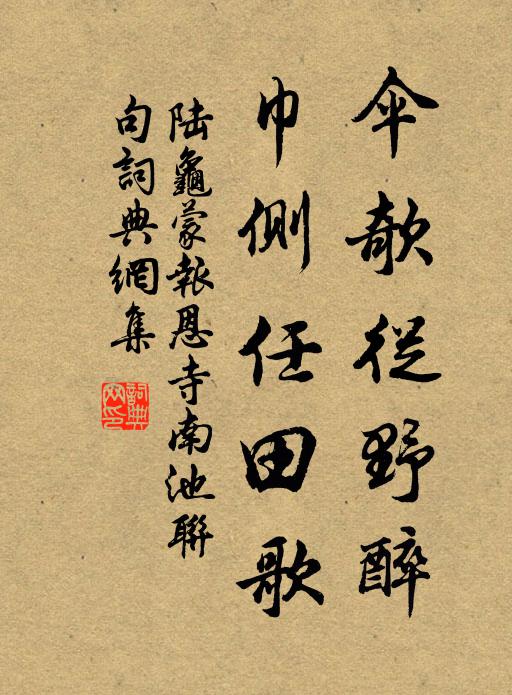 傘欹從野醉
巾側任田歌
陆龜蒙報恩寺南池聯
句詞典網集
詞典
网印